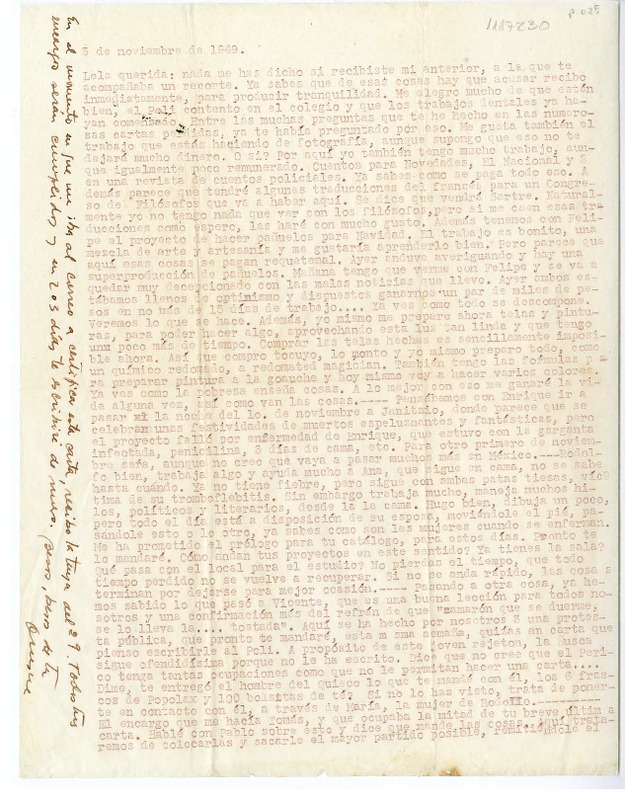 1117230
p. 025
3 de noviembre de 1949.
Lola querida: nada me has dicho si recibiste mi anterior, a la que te
acompañaba un recorte. Ya sabes que de esas cosas hay que acusar recibo
inmediatamente, para producir tranquilidad. Me alegro mucho de que estén
bien, el Poli contento en el colegio y que los trabajos dentales ya ha-
yan comenzado. Entre las muchas preguntas que te he hecho en las numero-
sas cartas perdidas, ya te había preguntado por eso. Me gusta también el
trabajo que estás haciendo de fotografía, aunque supongo que eso no te
dejará mucho dinero. O si? Por aquí yo también tengo mucho trabajo, aun-
que igualmente poco remunerado. Cuentos para Novedades, El Nacional y
en una revista de cuentos policiales. Ya sabes como se paga todo eso. A
demás parece que tendré algunas traducciones del francés para un Congre-
so de Filósofos que va a haber aquí. Se dice que vendrá Sartre. Natural-
mente yo no tengo nada que ver con los filósofos, pero si me caen esas tra-
ducciones como espero, las haré con mucho gusto. Además tenemos con Feli-
pe el proyecto de hacer pañuelos para Navidad. El trabajo es bonito, una
mezcla de arte y artesanía y me gustaría aprenderlo bien. Pero parece que
aquí esas cosas se pagan requetemal. Ayer anduve averiguando y hay una
superproducción de pañuelos. Mañana tengo que verme con Felipe y se va a
quedar muy decepcionado con las malas noticias que llevo. Ayer ambos es-
tábamos llenos de optimismo y dispuestos ganarnos un par de miles de pe-
sos en no más de 15 días de trabajo.... Ya ves como todo se descompone.
Veremos lo que se hace. Además, yo mismo me preparo ahora telas y pintu-
ras, para poder hacer algo, aprovechando esta luz tan linda y que tengo
un poco más de tiempo. Comprar las telas hechas es sencillamente imposi-
ble ahora. Así que compro tocuyo, lo monto y yo mismo preparo todo, como
un químico redomado, a redomated magician. También tengo las fórmulas pa-
ra preparar pintura a la gouache y hoy mismo voy a hacer varios colores.
Ya ves como la pobreza enseña cosas. A lo mejor con eso me ganaré la vi-
da alguna vez, así como van las cosas.---- Pensábamos con Enrique ir a
pasar mi la noche del 1o. de noviembre a Janitzio, donde parece que se
celebran unas festividades de muertos espeluznantes y fantásticas, pero
el proyecto falló por enfermedad de Enrique, que estuvo con la garganta
infectada, penicilina, 3 días de cama, etc. Para otro primero de noviem-
bre será, aunque no creo que vaya a pasar muchos más en México.---Rodol-
fo bien, trabaja algo y ayuda mucho a Ana, que sigue en cama, no se sabe
hasta cuando. Ya no tiene fiebre, pero sigue con ambas patas tiesas, víc-
tima de un tromboflebitis. Sin embargo trabaja mucho, maneja muchos hi-
los, políticos y literarios, desde la la cama. Hugo bien, dibuja un poco,
pero todo el día está a disposición de su esposa, moviéndole el pié, pa-
sándole esto o lo otro, ya sabes como son las mujeres cuando se enferman.
Me ha prometido el prólogo para tu catálogo, para estos días. Pronto te
lo mandaré. Cómo andan tus proyectos en este sentido? Ya tienes la sala?
Qué pasa con el local para el estudio? No pierdas el tiempo, que todo
tiempo perdido no se vuelve a recuperar. Si no se anda rápido, las cosa s
terminan por dejarse para mejor ocasión.---- Pasando a otra cosa, ya he-
mos sabido lo que pasó a Vicente, que es una buena lección para todos no-
sotros y una confirmación más del refrán de que "camarón que se duerme,
se lo lleva la.... tostada". Aquí se ha hecho por nosotros 3 una protes-
ta pública, que pronto te mandaré, esta m sma acmaña, quizás en carta que
pienso escribirle al Poli. A propósito de este joven rejeton, la Jusep
sigue ofendidísima porque no le ha escrito. Dice que no crea que el Peri-
co tenga tantas ocupaciones como que no le permitan hacer una carta....
Dime, te entregó el hombre del Quisco lo que te mandé con él, los 6 fras-
cos de Popolax y 100 bolsitas de té? Si no lo has visto, trata de poner-
te en contacto con él, a través de María, la mujer de Rodolfo.----------
El encargo que me hacía Tomás, y que ocupaba la mitad de tu breve últim a
carta. Hablé con Pablo sobre esto y dice que mande las cosas. Aquí trata-
remos de colocarlas y sacarle el mayor partido posible, remitiéndole el
En el momento en que me iba al correo a certificar esta carta, recibo la tuya del 29. Todos tus
encargos serán cumplidos y en 2 o 3 días te escribiré de nuevo. Besos, besos de tu